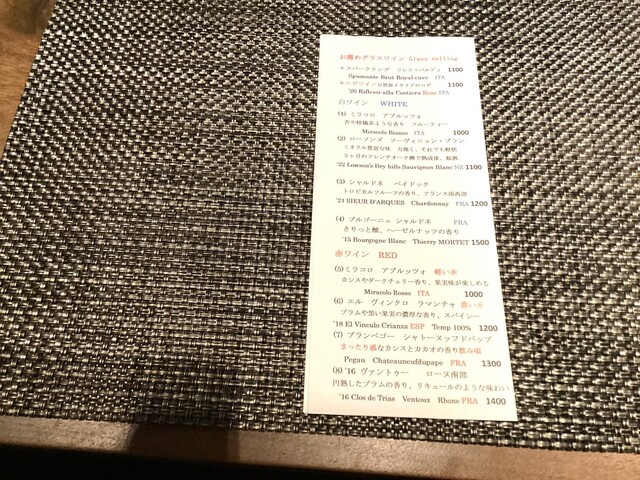 お薦めグラスワイン Glass selling
＊スパークリング フレスコバルディ 1100
Spumante Brut Royal cuve ITA
＊ロゼワイン自然派イタリアのロゼ 1100
'20 Riflessi alla Costiera Rose ITA
白ワイン WHITE
(1) ミラコロ アブルッツォ
杏や柑橘系ような香り フルーティー
Miracolo Bianco ITA 1000
(2) ローソンズ ソーヴィニョン・ブラン
ミネラル豊富な味 力強く、それでも軽快
3ヶ月のフレンチオーク樽で熟成後、瓶詰
'22 Lowson's Dry hills Sauvignon Blanc NZ 1100
(3) シャルドネ ペイドック
トロピカルフルーツの香り、フランス南西部
'21 SIEUR D'ARQUES Chardonnay FRA 1200
(4) ブルゴーニュ シャルドネ FRA
きりっと酸、ヘーゼルナッツの香り
'15 Bourgogne Blanc Thierry MORTET 1500
赤ワイン RED
(5)ミラコロ アブルッツォ 軽い赤
カシスやダークチェリー香り、果実味が楽しめる
Miracolo Rosso ITA 1000
(6) エル ヴィンクロ ラマンチャ 濃い赤
プラムや黒い果実の濃厚な香り、スパイシー
'18 El Vinculo Crianza ESP Temp 100% 1200
(7) プランペゴー シャトーヌッフドパップ
まったり感なカシスとカカオの香り飲み頃
Pegau Chateauneufdupape FRA 1300
(8) '16 ヴァントゥー ローヌ南部
円熟したプラムの香り、リキュールのような味わい
'16 Clos de Trias Ventoux Rhone FRA 1400